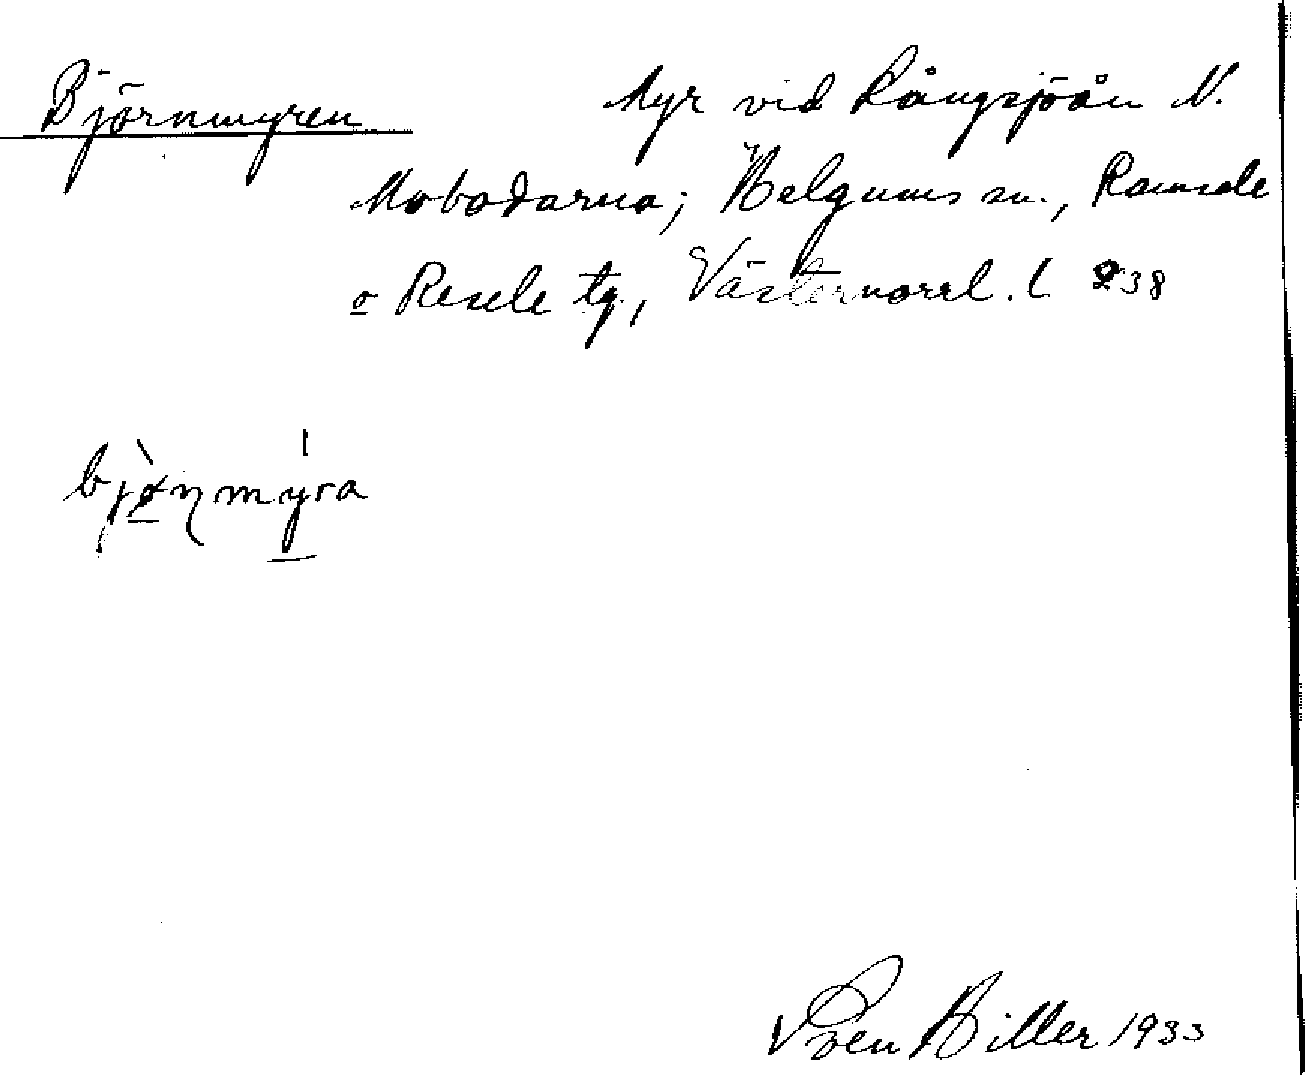 Björnmyren Myr vid Långsjöån N.
Mobodarna; Helgums sn., Ramsele
o Resele tg., Västernorrl. l 238
bjønmyra
Sven Hiller 1933